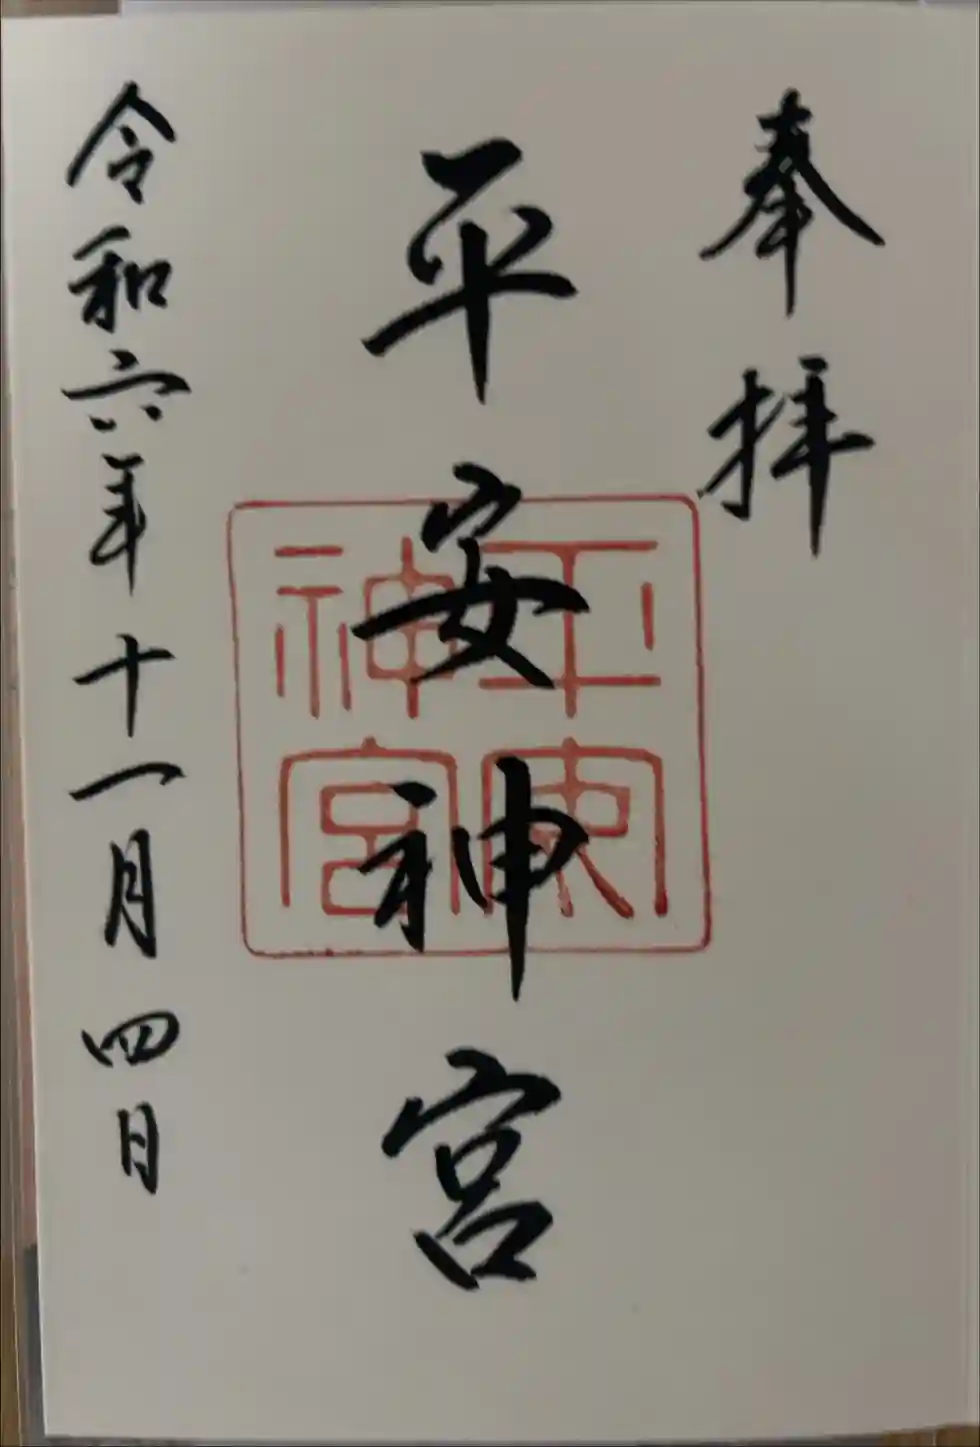 奉拝
平安神宮
令和六年十一月四日
平安神宮